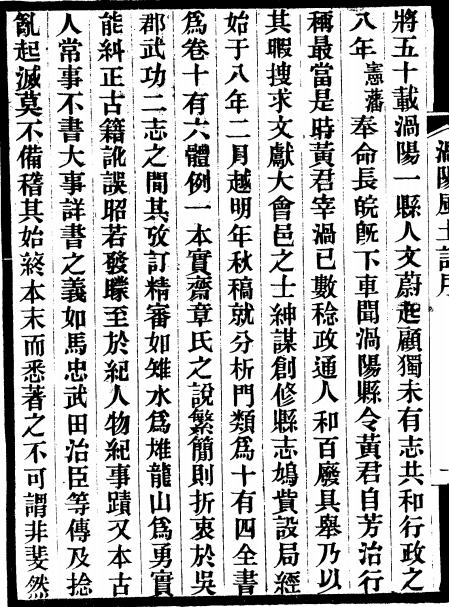 渦陽風土記序
將五十載渦陽一縣人文蔚起顧獨未有志共和行政之
八年憲藩奉命長皖旣下車聞渦陽縣令黃君自芳治行
稱最當是時黃君宰渦已數稔政通人和百廢具舉乃以
其暇搜求文獻大會邑之士紳謀創修縣志鳩貲設局經
始于八年二月越明年秋稿就分析門類爲十有四全書
爲卷十有六體例一本實齋章氏之說繁簡則折衷於吳
郡武功二志之間其攷訂精審如雉水爲雄龍山爲勇實
能糾正古籍訛誤昭若發矇至於紀人物紀事蹟又本古
人常事不書大事詳書之義如馬忠武田治臣等傳及捻
亂起滅莫不備稽其始終本末而悉著之不可謂非斐然